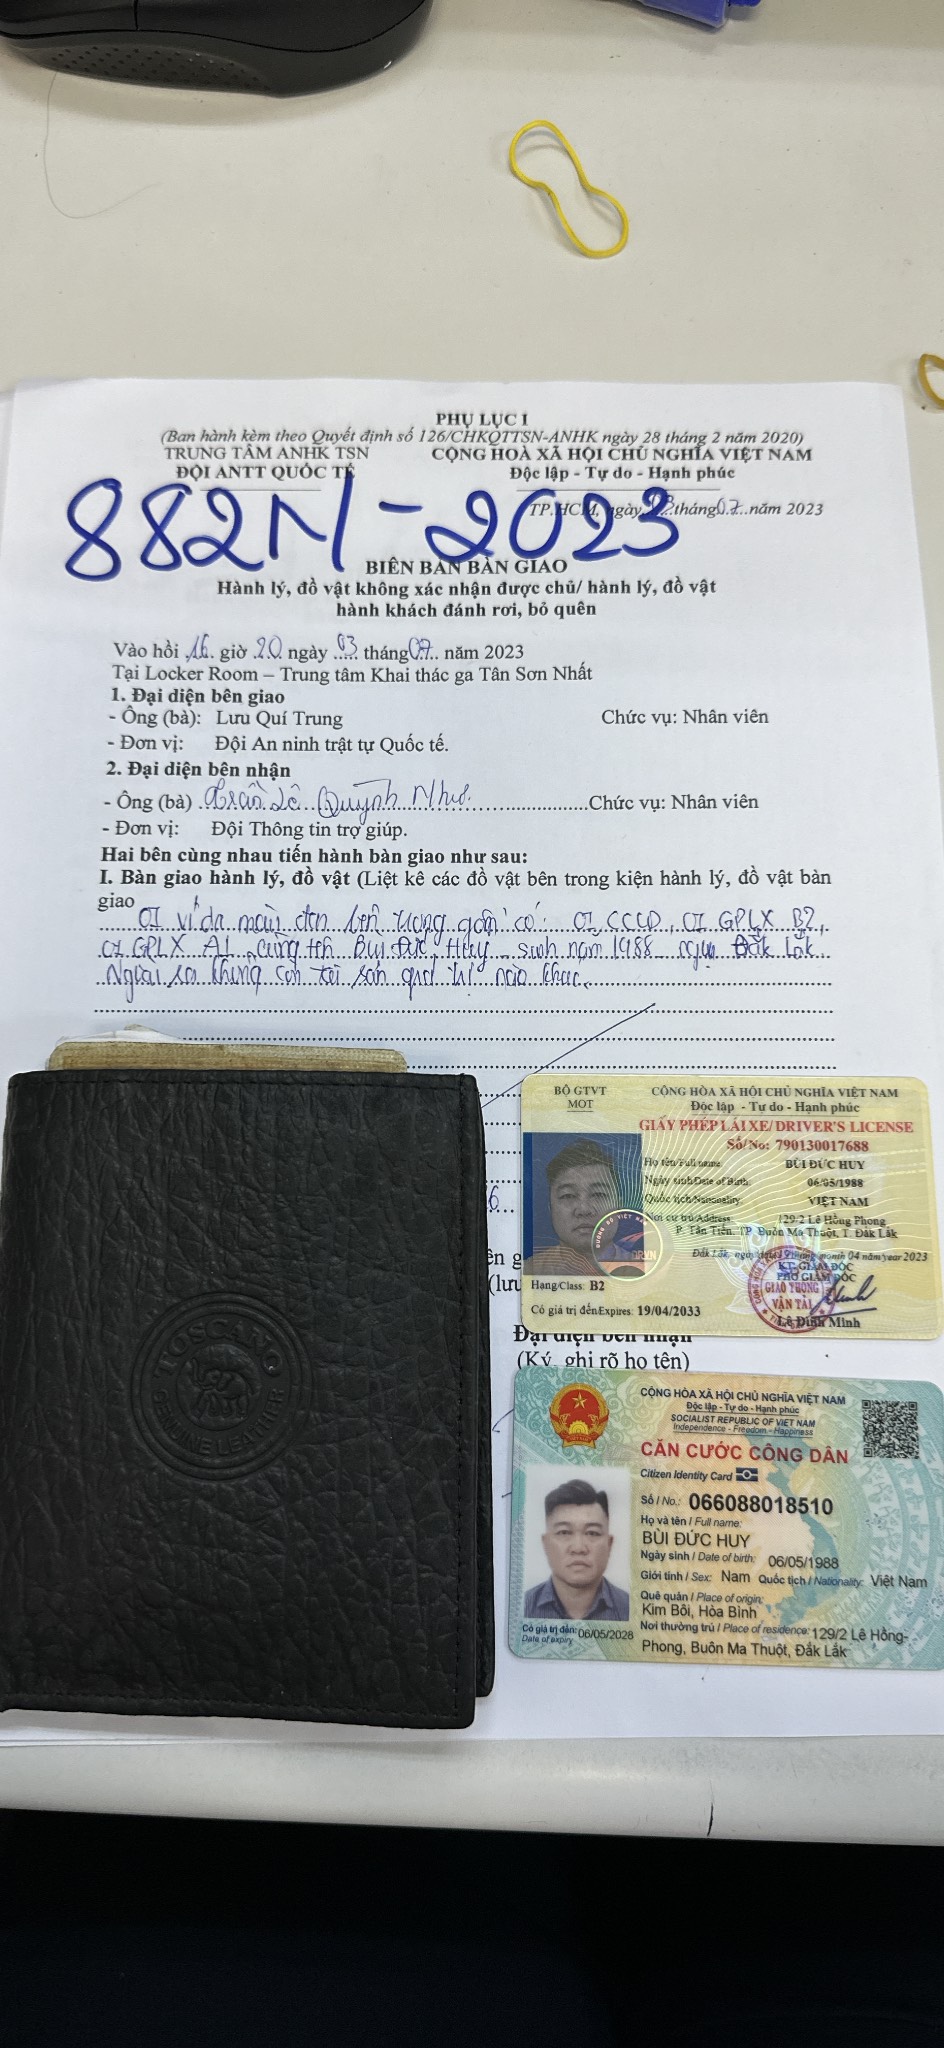 PHỤ LỤC I
(Ban hành kèm theo Quyết định số 126/CHKQTTSN-ANHK ngày 28 tháng 2 năm 2020)
TRUNG TÂM ANHK TSN
ĐỘI ANTT QUỐC TẾ
CỘNG HOÀ XÃ HỘI CHỦ NGHĨA VIỆT NAM
Độc lập - Tự do - Hạnh phúc
882N-2023
TP.HCM, ngày 03 tháng 07 năm 2023
BIÊN BẢN BÀN GIAO
Hành lý, đồ vật không xác nhận được chủ/ hành lý, đồ vật
hành khách đánh rơi, bỏ quên
Vào hồi 16 giờ 20 ngày 03 tháng 07 năm 2023
Tại Locker Room – Trung tâm Khai thác ga Tân Sơn Nhất
1. Đại diện bên giao
- Ông (bà): Lưu Quí Trung Chức vụ: Nhân viên
- Đơn vị: Đội An ninh trật tự Quốc tế.
2. Đại diện bên nhận
- Ông (bà) Trần Lê Quỳnh Như Chức vụ: Nhân viên
- Đơn vị: Đội Thông tin trợ giúp.
Hai bên cùng nhau tiến hành bàn giao như sau:
I. Bàn giao hành lý, đồ vật (Liệt kê các đồ vật bên trong kiện hành lý, đồ vật bàn
giao
01 ví da màu đen bên trong gồm có: 01 CCCD, 01 GPLX B2,
01 GPLX A1 cùng tên Bùi Đức Huy sinh năm 1988 ngụ Đắk Lắk
Ngoài ra không còn tài sản quý nào khác.
(lưu
Đại diện bên nhận
(Ký, ghi rõ họ tên)
BỘ GTVT
MOT
CỘNG HÒA XÃ HỘI CHỦ NGHĨA VIỆT NAM
Độc lập - Tự do - Hạnh phúc
GIẤY PHÉP LÁI XE/ DRIVER'S LICENSE
Số/No: 790130017688
Họ tên/Full name: BÙI ĐỨC HUY
Ngày sinh/Date of Birth: 06/05/1988
Quốc tịch/Nationality: VIỆT NAM
Nơi cư trú/Address: 129/2 Lê Hồng Phong
P. Tân Tiến, TP. Buôn Ma Thuột, T. Đắk Lắk
Đắk Lắk, ngày/date 19 tháng/month 04 năm/year 2023
KT. GIÁM ĐỐC
PHÓ GIÁM ĐỐC
GIAO THÔNG
VẬN TẢI
Lê Đình Minh
Hạng/Class: B2
Có giá trị đến/Expires: 19/04/2033
CỘNG HÒA XÃ HỘI CHỦ NGHĨA VIỆT NAM
Độc lập - Tự do - Hạnh phúc
SOCIALIST REPUBLIC OF VIET NAM
Independence - Freedom - Happiness
CĂN CƯỚC CÔNG DÂN
Citizen Identity Card
Số / No.: 066088018510
Họ và tên / Full name:
BÙI ĐỨC HUY
Ngày sinh / Date of birth: 06/05/1988
Giới tính / Sex: Nam Quốc tịch / Nationality: Việt Nam
Quê quán / Place of origin:
Kim Bôi, Hòa Bình
Nơi thường trú / Place of residence: 129/2 Lê Hồng-
Phong, Buôn Ma Thuột, Đắk Lắk
Có giá trị đến: 06/05/2028
Date of expiry